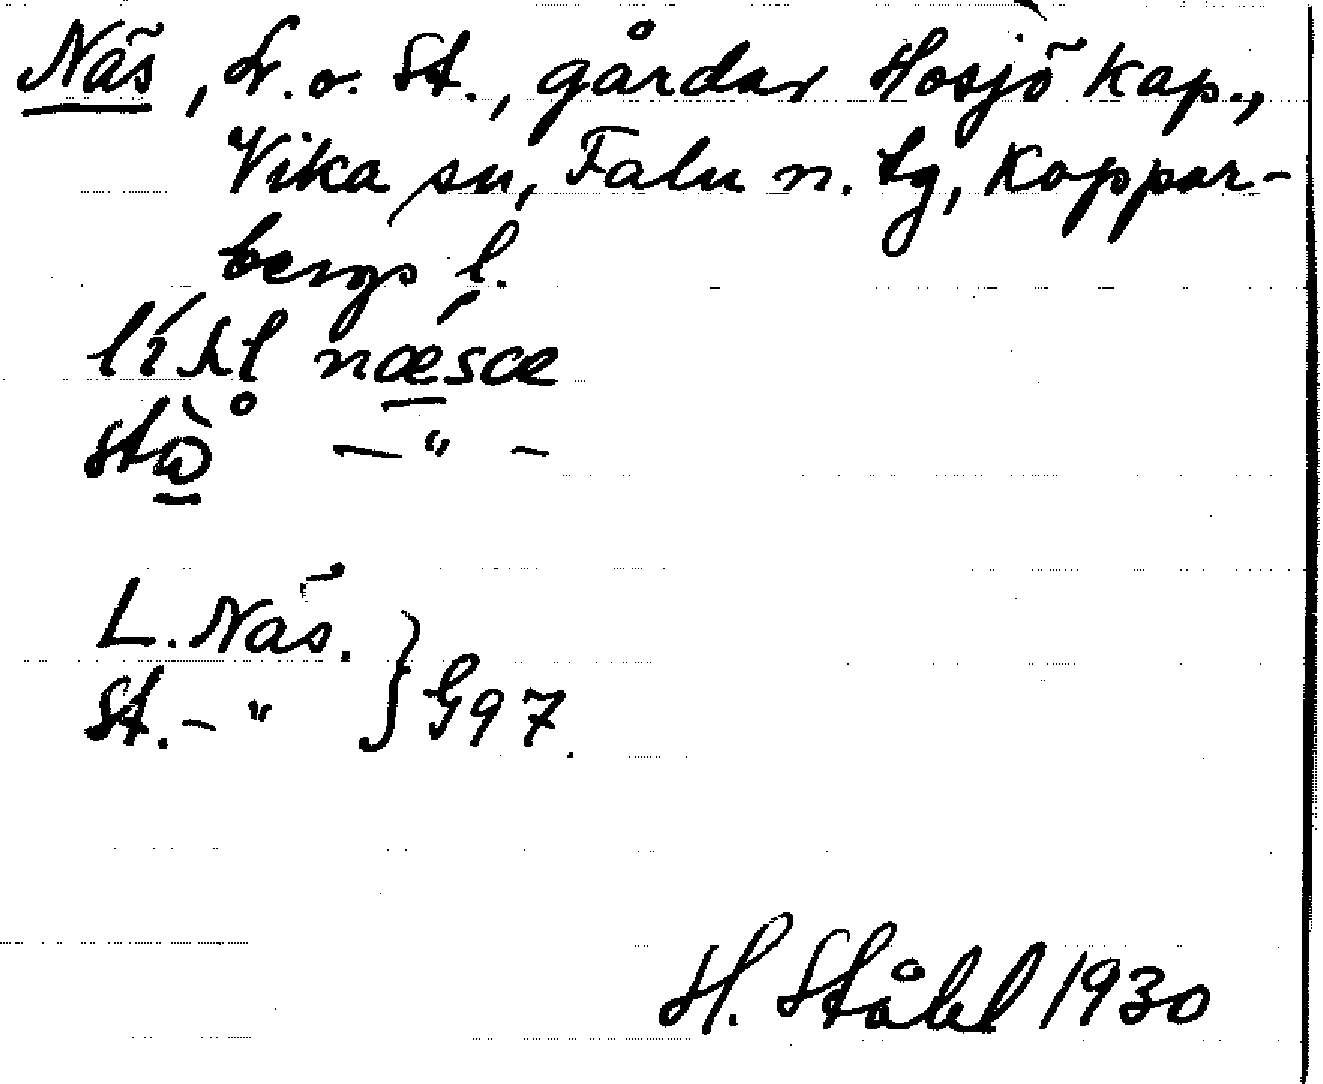 Näs, L. o. St., gårdar Hosjö kap.,
Vika sn, Falu n. tg, Koppar-
bergs l.
næsæ
— " —
L. Näs.
St. – " } G97.
H. Ståhl 1930